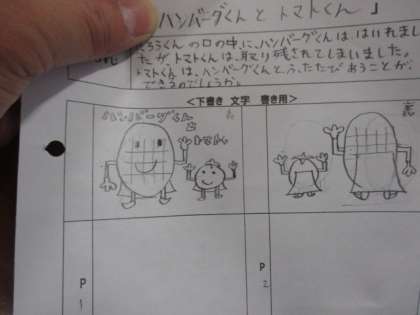 「ハンバーグくんと トマトくん」
の口の中に、ハンバーグくんは、はいれまし
たが、トマトくんは、取り残されてしまいました。
トマトくんは、ハンバーグくんと、ふたたびあうことが、
できるのでしょうか。
<下書き 文字 書き用>
ハンバーグくん
と
トマトくん
表
裏
P
1
P
2